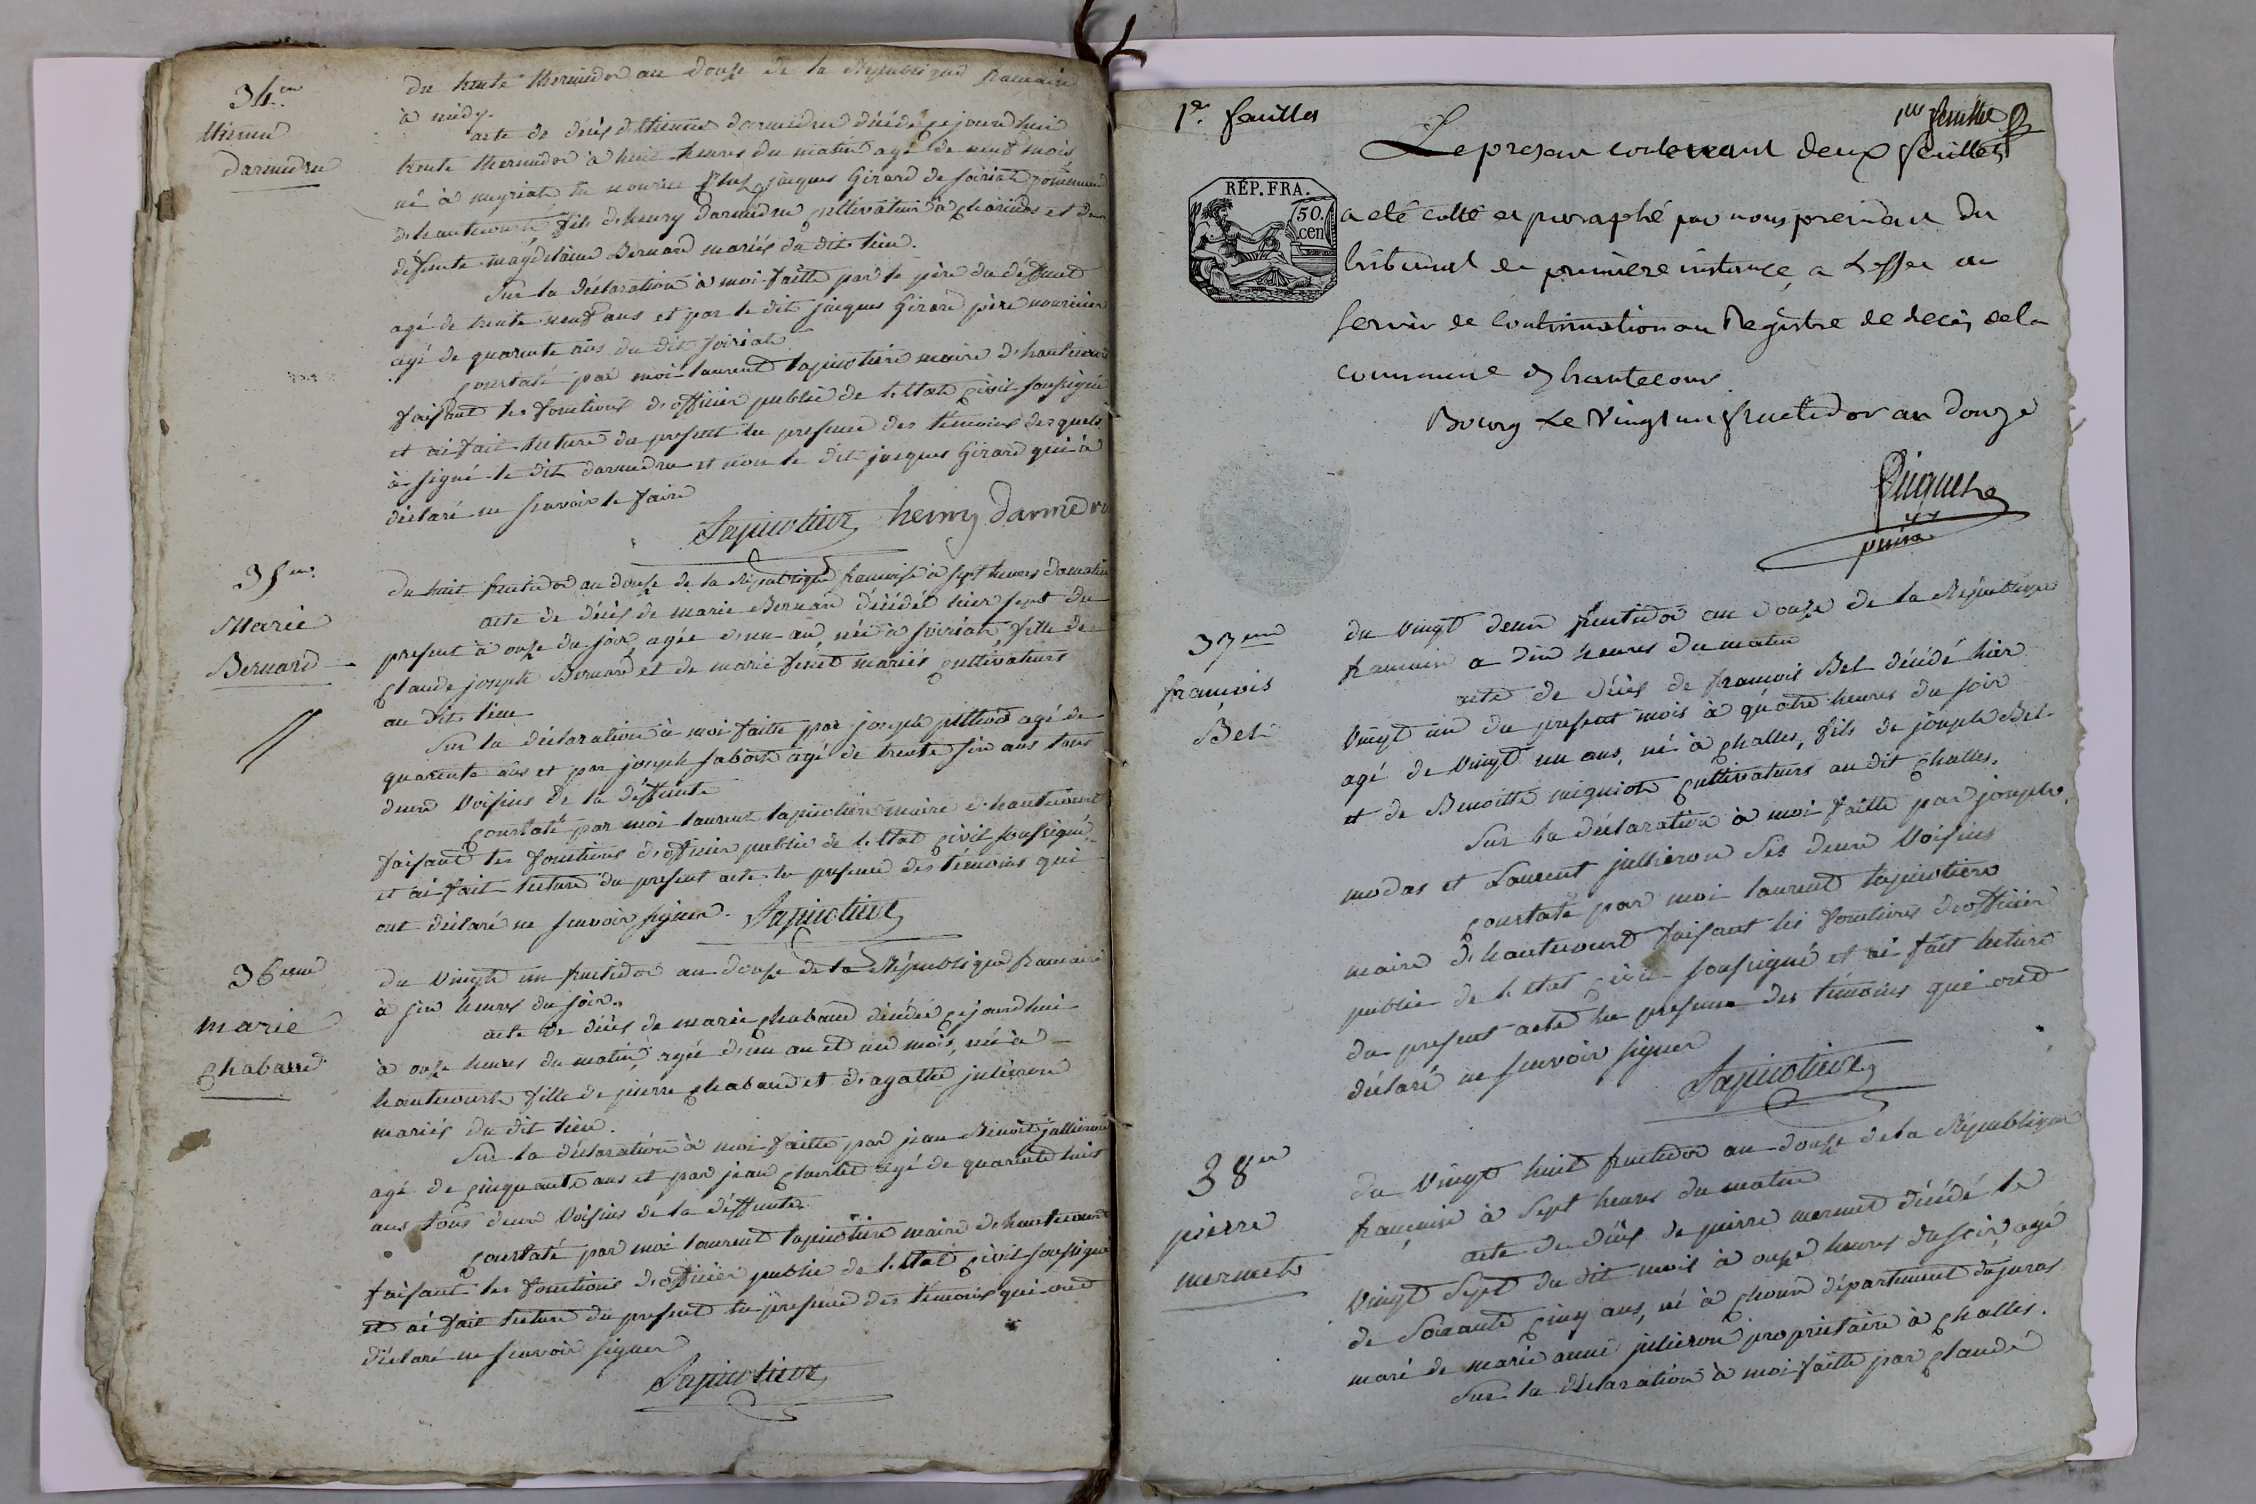 34.em
Etienne
Darmedru
Du trente thermidor an douze de la République francaise
à midy.
acte de décès d'Etienne darmedru décédé cejourdhui
trente thermidor à huit heures du matin agé de neuf mois
né à meyriat en nourice chez jacques Girard de soiriat commune
d'hautecourt fils d'henry darmedru cultivateur à charinas et de
deffunte magdelaine Bernard mariés du dit lieu.
Sur la déclaration à moi faitte par le père du déffunt
agé de trente neuf ans et par le dit jacques Girard père nouricier
agé de quarente ans du dit soiriat
Constaté par moi laurent lapierre maire d'hautecourt
faisant les fonctions d'officier public de l'Etat civil soussigné
et ai fait lecture du present en presence des temoins desquels
à signé le dit darmedru et non le dit jacques Girard qui à
déclaré ne scavoir le faire
henry Darmedru
35em.
Marie
Bernard
Du huit fructidor an douze de la République francaise à sept heures du matin
acte de décès de marie Bernard décédée hier sept du
present à onze du soir, agée d'un an, née à soiriat, fille de
Claude joseph Bernard et de marie finet mariés cultivateurs
au dit lieu
Sur la déclaration à moi faitte par joseph pilliod agé de
quarente ans et par joseph sabost agé de trente six ans tous
deux voisins de la déffunte
faisant les fonctions d'officier public de l'Etat civil soussigné,
et ai fait lecture du present acte en presence des témoins qui
ont déclaré ne scavoir signer.
36eme
marie
Chabaud
Du vingt un fructidor an douze de la République francaise
à six heures du soir.
acte de décès de marie Chabaud décédée cejourdhui
à onze heures du matin, agée d'un an et un mois, née à
hautecourt fille de pierre Chabaud et d'agathe julieron
mariés du dit lieu.
Sur la déclaration à moi faitte par jean Benoit jullieron
agé de cinquante ans et par jean agé de quarente huit
ans tous deux voisins de la déffunte
faisant les fonctions d'officier public de l'Etat civil soussigné
et ai fait lecture du present en presence des temoins qui ont
déclaré ne scavoir signer
1er. feuillet
1er feuillet
Le present contenant deux feuillets
RÉP. FRA.
50.
cen
a eté cotté et paraphé par nous president du
tribunal de premiere instance, a L'effet de
servir de Continuation au Registre de deces de la
commune d'hautecour.
Bourg Le Vingt un fructidor an Douze
37eme
françois
Bel
du vingt deux fructidor an douze de la République
francaise a dix heures du matin
acte de décès de françois Bel décédé hier
vingt un du present mois à quatre heures du soir
agé de vingt un ans, né à Challes, fils de joseph Bel
et de Benoitte migniot cultivateurs au dit Challes.
Sur la déclaration à moi faitte par joseph
modas et Laurent jullieron ses deux voisins
maire d'hautecourt faisant les fonctions d'officier
public de l'Etat civil soussigné et ai fait lecture
du present acte en presence des témoins qui ont
déclaré ne scavoir signer
38em
pierre
mermet
du vingt huit fructidor an douze de la République
française à sept heures du matin
acte de décès de pierre mermet décédé le
vingt sept du dit mois à onze heures du soir, agé
de soixante cinq ans, né à département du juras
mari de marie anne julieron propriétaire à Challes.
Sur la déclaration à moi faitte par Claude